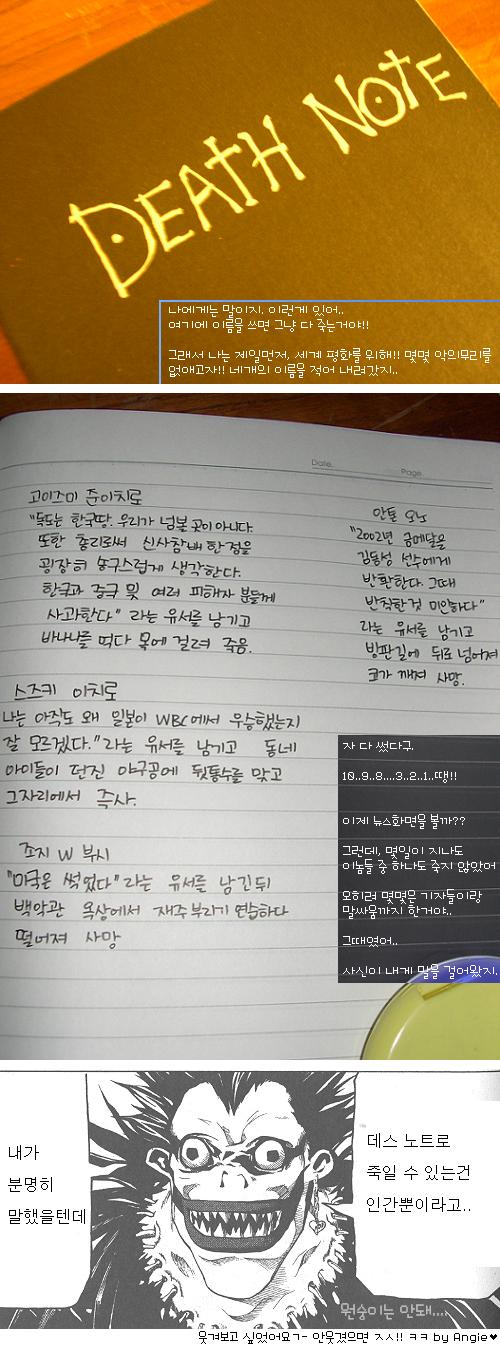 DEATH NOTE
나에게는 말이지. 이런게 있어..
여기에 이름을 쓰면 그냥 다 죽는거야!!
그래서 나는 제일먼저, 세계 평화를 위해!! 몇몇 악의무리를
없애고자!! 네개의 이름을 적어 내려갔지..
Date.
Page
고이즈미 준이치로
"독도는 한국땅. 우리가 넘볼 곳이 아니다.
또한 총리로써 신사참배 한 점을
굉장히 송구스럽게 생각한다.
한국과 중국 및 여러 피해자 분들께
사과한다" 라는 유서를 남기고
바나나를 먹다 목에 걸려 죽음.
안톤 오노
"2002년 금메달을
김동성 선수에게
반환한다. 그때
반칙한것 미안하다"
라는 유서를 남기고
빙판길에 뒤로 넘어져
코가 깨져 사망.
스즈키 이치로
나는 아직도 왜 일본이 WBC에서 우승했는지
잘 모르겠다." 라는 유서를 남기고 동네
아이들이 던진 야구공에 뒷통수를 맞고
그자리에서 즉사.
죠지 W 부시
"미국은 썩었다" 라는 유서를 남긴뒤
백악관 옥상에서 재주부리기 연습하다
떨어져 사망
자 다 썼다구.
10..9..8....3..2..1..땡!!
이제 뉴스화면을 볼까??
그런데, 몇일이 지나도
이놈들 중 하나도 죽지 않았어
오히려 몇몇은 기자들이랑
말싸움까지 한거야..
그때였어..
사신이 내게 말을 걸어왔지.
내가
분명히
말했을텐데
데스 노트로
죽일 수 있는건
인간뿐이라고..
원숭이는 안돼....
웃겨보고 싶었어요ㄱ- 안웃겼으면 ㅈㅅ!! ㅋㅋ by Angie♥